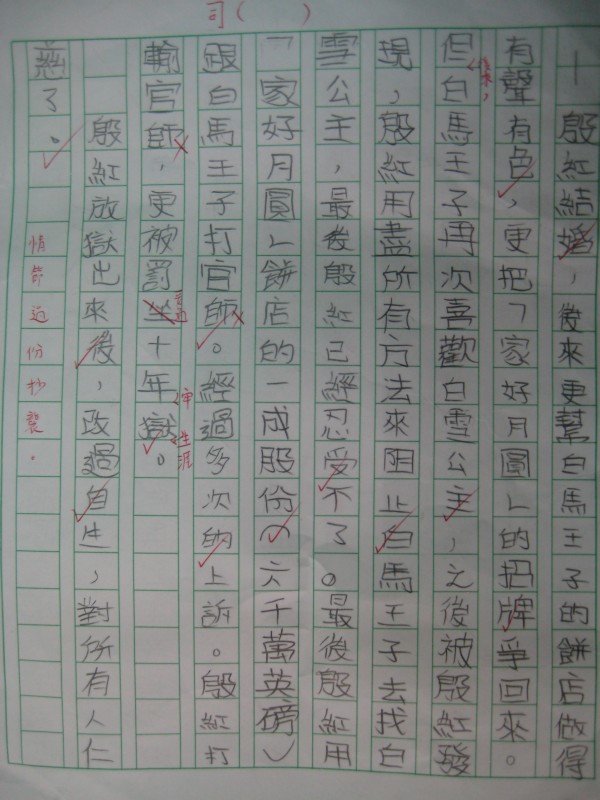 司( )
一殷紅結婚，後來更幫白馬王子的餅店做得
有聲有色，更把「家好月圓」的招牌爭回來。
但白馬王子再次喜歡白雪公主，之後被殷紅發
後來，
現，殷紅用盡所有方法來阻止白馬王子去找白
雪公主，最後殷紅已經忍受不了。最後殷紅用
「家好月圓」餅店的一成股份(六千萬英磅)
跟白馬王子打官師。經過多次的上訴。殷紅打
輸官師，更被罰坐十年獄。
牢
生涯
殷紅放獄出來後，改過自生，對所有人仁
慈了。
情節過份抄襲。